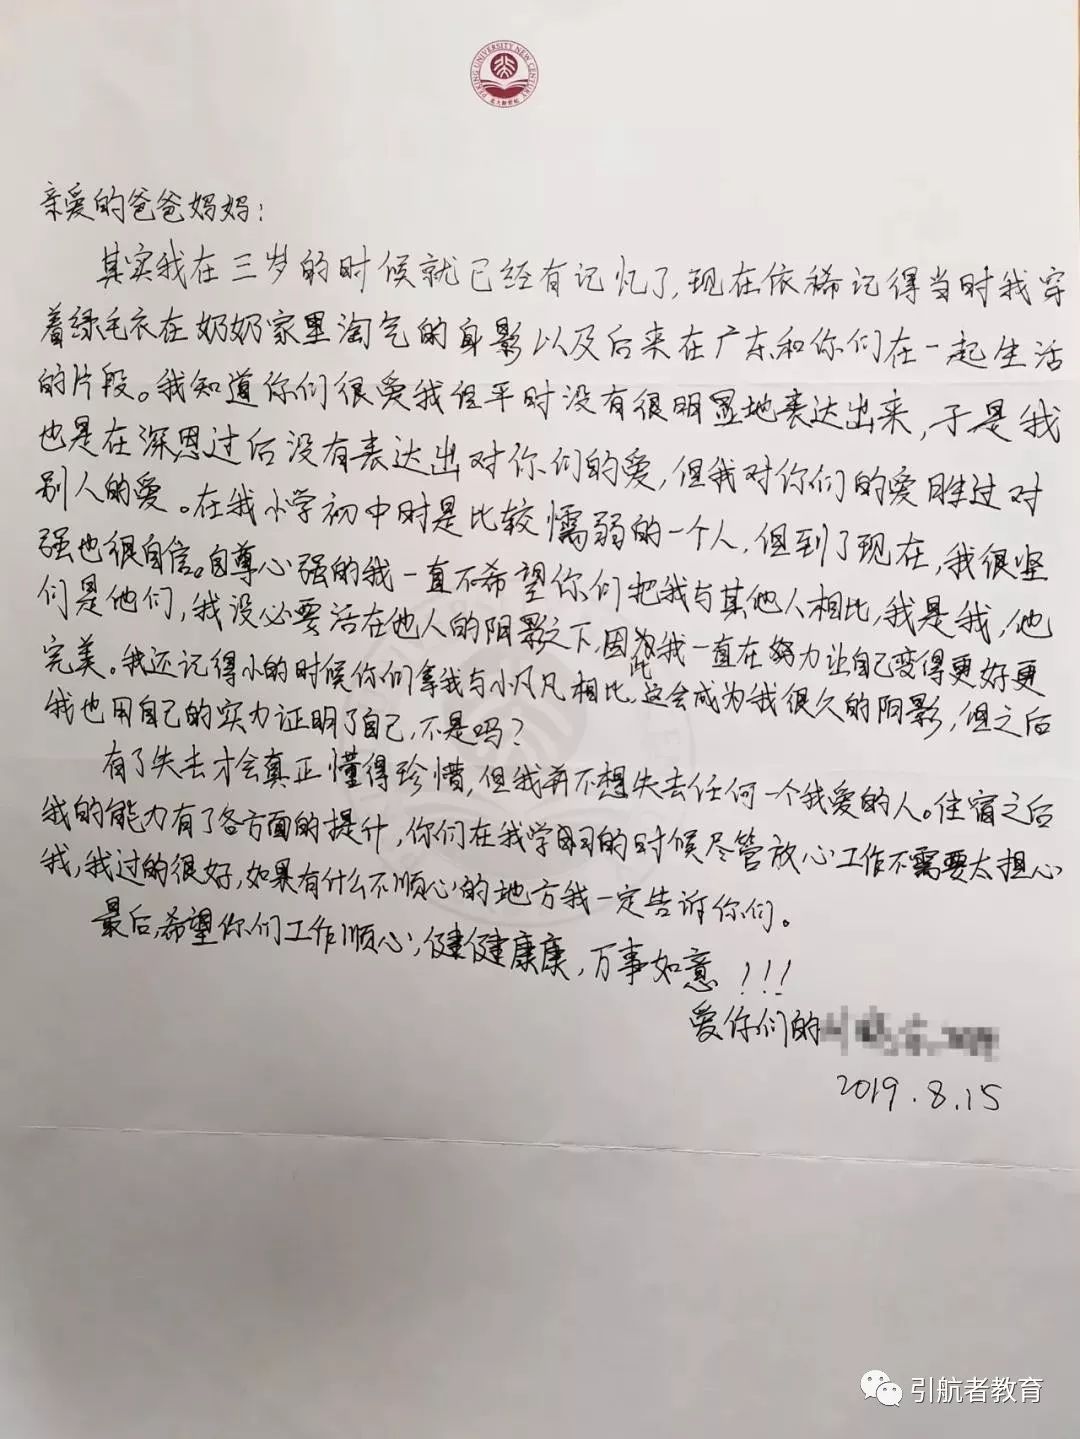 PEKING UNIVERSITY NEW CENTURY
亲爱的爸爸妈妈：
其实我在三岁的时候就已经有记忆了，现在依稀记得当时我穿
着绿毛衣在奶奶家里淘气的身影以及后来在广东和你们在一起生活
的片段。我知道你们很爱我但平时没有很明显地表达出来，于是我
也是在深恩过后没有表达出对你们的爱，但我对你们的爱胜过对
别人的爱。在我小学初中时是比较懦弱的一个人，但到了现在，我很坚
强也很自信。自尊心强的我一直不希望你们把我与其他人相比，我是我，他
们是他们，我没必要活在他人的阴影之下，因为我一直在努力让自己变得更好更
完美。我还记得小的时候你们拿我与小凡凡相比，这会成为我很久的阴影，但之后
我也用自己的实力证明了自己，不是吗？
有了失去才会真正懂得珍惜，但我并不想失去任何一个我爱的人。住宿之后
我的能力有了各方面的提升，你们在我学习的时候尽管放心工作不需要太担心
我，我过的很好，如果有什么不顺心的地方我一定告诉你们。
最后，希望你们工作顺心，健健康康，万事如意！！！
爱你们的
2019.8.15
引航者教育